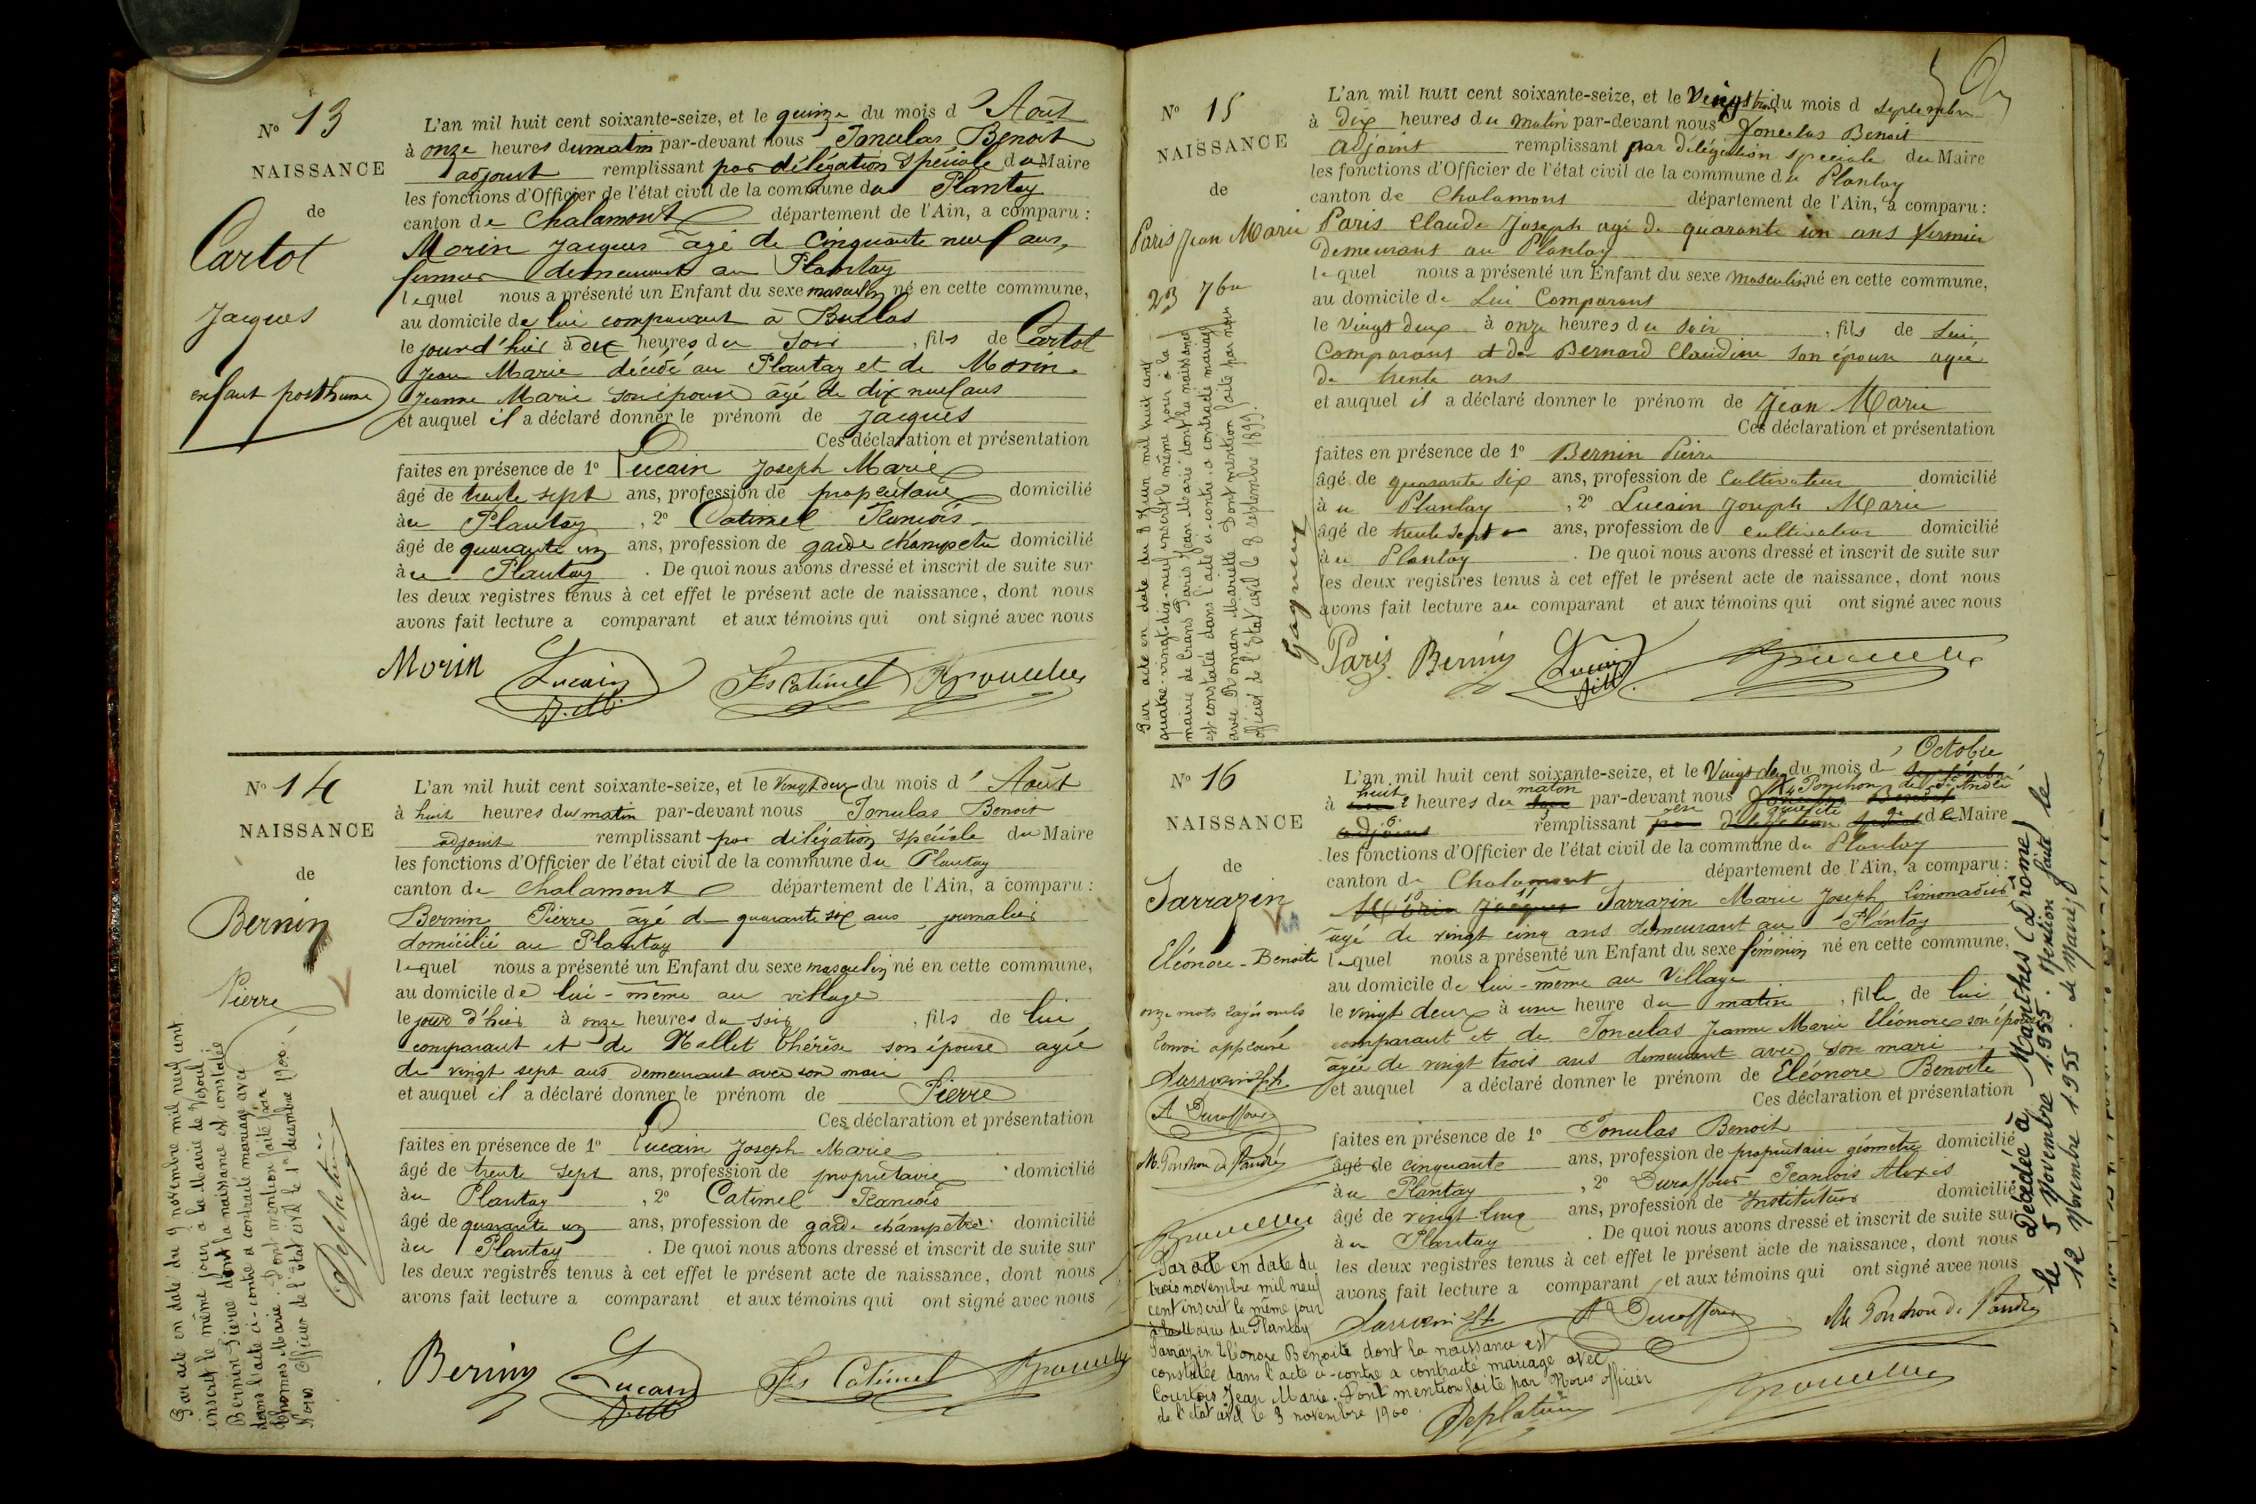 N° 13
NAISSANCE
de
Cartot
Jacques
enfant posthume
L'an mil huit cent soixante-seize, et le quinze du mois d'Août
à onze heures du matin par-devant nous Joncelas Benoit
adjoint remplissant par délégation spéciale du Maire
les fonctions d'Officier de l'état civil de la commune du Plantay
canton de Chalamont département de l'Ain, a comparu :
Morin Jacques âgé de cinquante neuf ans,
fermier demeurant au Plantay
lequel nous a présenté un Enfant du sexe masculin né en cette commune,
au domicile de lui comparant à
le jour d'hier à dix heures du soir, fils de Cartot
Jean Marie décédé au Plantay et de Morin
Jeanne Marie son épouse âgé de dix neuf ans
et auquel il a déclaré donner le prénom de Jacques
Ces déclaration et présentation
faites en présence de 1° Lucain Joseph Marie
âgé de trente sept ans, profession de propriétaire domicilié
au Plantay, 2° Catimel Francois
âgé de quarante un ans, profession de garde champetre domicilié
au Plantay. De quoi nous avons dressé et inscrit de suite sur
les deux registres tenus à cet effet le présent acte de naissance, dont nous
avons fait lecture a comparant et aux témoins qui ont signé avec nous
Morin Lucain J.M. Fs Catimel
N° 14
NAISSANCE
de
Bernin
Pierre
Par acte en date du 9 novembre mil neuf cent
inscrit le même jour à la Mairie de Versoul
Bernin Pierre dont la naissance est constatée
dans l'acte ci-contre a contracté mariage avec
Thomas Marie. Dont mention faite par
Nous Officier de l'état civil le 1er décembre 1900.
Deplatière
L'an mil huit cent soixante-seize, et le vingt deux du mois d'Août
à huit heures du matin par-devant nous Joncelas Benoit
adjoint remplissant par délégation spéciale du Maire
les fonctions d'Officier de l'état civil de la commune du Plantay
canton de Chalamont département de l'Ain, a comparu :
Bernin Pierre âgé de quarante six ans, journalier
domicilié au Plantay
lequel nous a présenté un Enfant du sexe masculin né en cette commune,
au domicile de lui-même au village
le jour d'hier à onze heures du soir, fils de lui
comparant et de Mallet Thérèse son épouse agée
de vingt sept ans demeurant avec son mari
et auquel il a déclaré donner le prénom de Pierre
Ces déclaration et présentation
faites en présence de 1° Lucain Joseph Marie
âgé de trente sept ans, profession de propriétaire domicilié
au Plantay, 2° Catimel Francois
âgé de quarante un ans, profession de garde champêtre domicilié
au Plantay. De quoi nous avons dressé et inscrit de suite sur
les deux registres tenus à cet effet le présent acte de naissance, dont nous
avons fait lecture a comparant et aux témoins qui ont signé avec nous
Bernin Lucain J.M. Fs Catimel
N° 15
NAISSANCE
de
Paris Jean Marie
23 7bre
Par acte en date du 8 Juin mil huit cent
quatre-vingt-dix-neuf inscrit le même jour à la
mairie de Crans Paris Jean Marie dont la naissance
est constatée dans l'acte ci-contre a contracté mariage
avec Roman Mariette. Dont mention faite par nous
officier de l'Etat civil le 8 septembre 1899.
L'an mil huit cent soixante-seize, et le vingt trois du mois d septembre
à dix heures du matin par-devant nous Joncelas Benoit
adjoint remplissant par délégation speciale du Maire
les fonctions d'Officier de l'état civil de la commune du Plantay
canton de Chalamont département de l'Ain, a comparu :
Paris Claude Joseph agé de quarante un ans fermier
demeurant au Plantay
lequel nous a présenté un Enfant du sexe masculin né en cette commune,
au domicile de Lui Comparant
le vingt deux à onze heures du soir, fils de Lui
Comparant et de Bernard Claudine son épouse agée
de trente ans
et auquel il a déclaré donner le prénom de Jean Marie
Ces déclaration et présentation
faites en présence de 1° Bernin Pierre
âgé de quarante six ans, profession de cultivateur domicilié
au Plantay, 2° Lucain Joseph Marie
âgé de trente sept ans, profession de cultivateur domicilié
au Plantay. De quoi nous avons dressé et inscrit de suite sur
les deux registres tenus à cet effet le présent acte de naissance, dont nous
avons fait lecture au comparant et aux témoins qui ont signé avec nous
Paris Bernin Lucain J.M.
N° 16
NAISSANCE
de
Sarrazin
Eléonore-Benoite
onze mots rayés nuls
renvoi approuvé
Sarrazin Jh
A Duraffour
M. Ponchon de St André
L'an mil huit cent soixante-seize, et le vingt deux du mois d'Octobre septembre
à huit heures du matin par-devant nous Ponchon de St André Joncelas Benoit
adjoint remplissant par délégation de Maire
les fonctions d'Officier de l'état civil de la commune du Plantay
canton de Chalamont département de l'Ain, a comparu :
Morin Jacques Sarrazin Marie Joseph limonadier
âgé de vingt cinq ans demeurant au Plantay
lequel nous a présenté un Enfant du sexe féminin né en cette commune,
au domicile de lui-même au Village
le vingt deux à une heure du matin, fille de lui
comparant et de Joncelas Jeanne Marie Eléonore son épouse
âgée de vingt trois ans demeurant avec son mari
et auquel a déclaré donner le prénom de Eléonore Benoite
Ces déclaration et présentation
faites en présence de 1° Joncelas Benoit
âgé de cinquante ans, profession de propriétaire géomètre domicilié
au Plantay, 2° Duraffour Francois Alexis
âgé de vingt cinq ans, profession de Instituteur domicilié
au Plantay. De quoi nous avons dressé et inscrit de suite sur
les deux registres tenus à cet effet le présent acte de naissance, dont nous
avons fait lecture a comparant et aux témoins qui ont signé avec nous
Sarrazin Jh A Duraffour M. Ponchon de St André
Par acte en date du
trois novembre mil neuf
cent inscrit le même jour
à la Mairie du Plantay
Sarrazin Eléonore Benoite dont la naissance est
constatée dans l'acte ci-contre a contracté mariage avec
Courtois Jean Marie. Dont mention faite par Nous officier
de l'état civil le 3 novembre 1900.
Deplatière
Décédée à Manthes (Drôme)
le 5 Novembre 1955. Mention faite le
12 Novembre 1955.